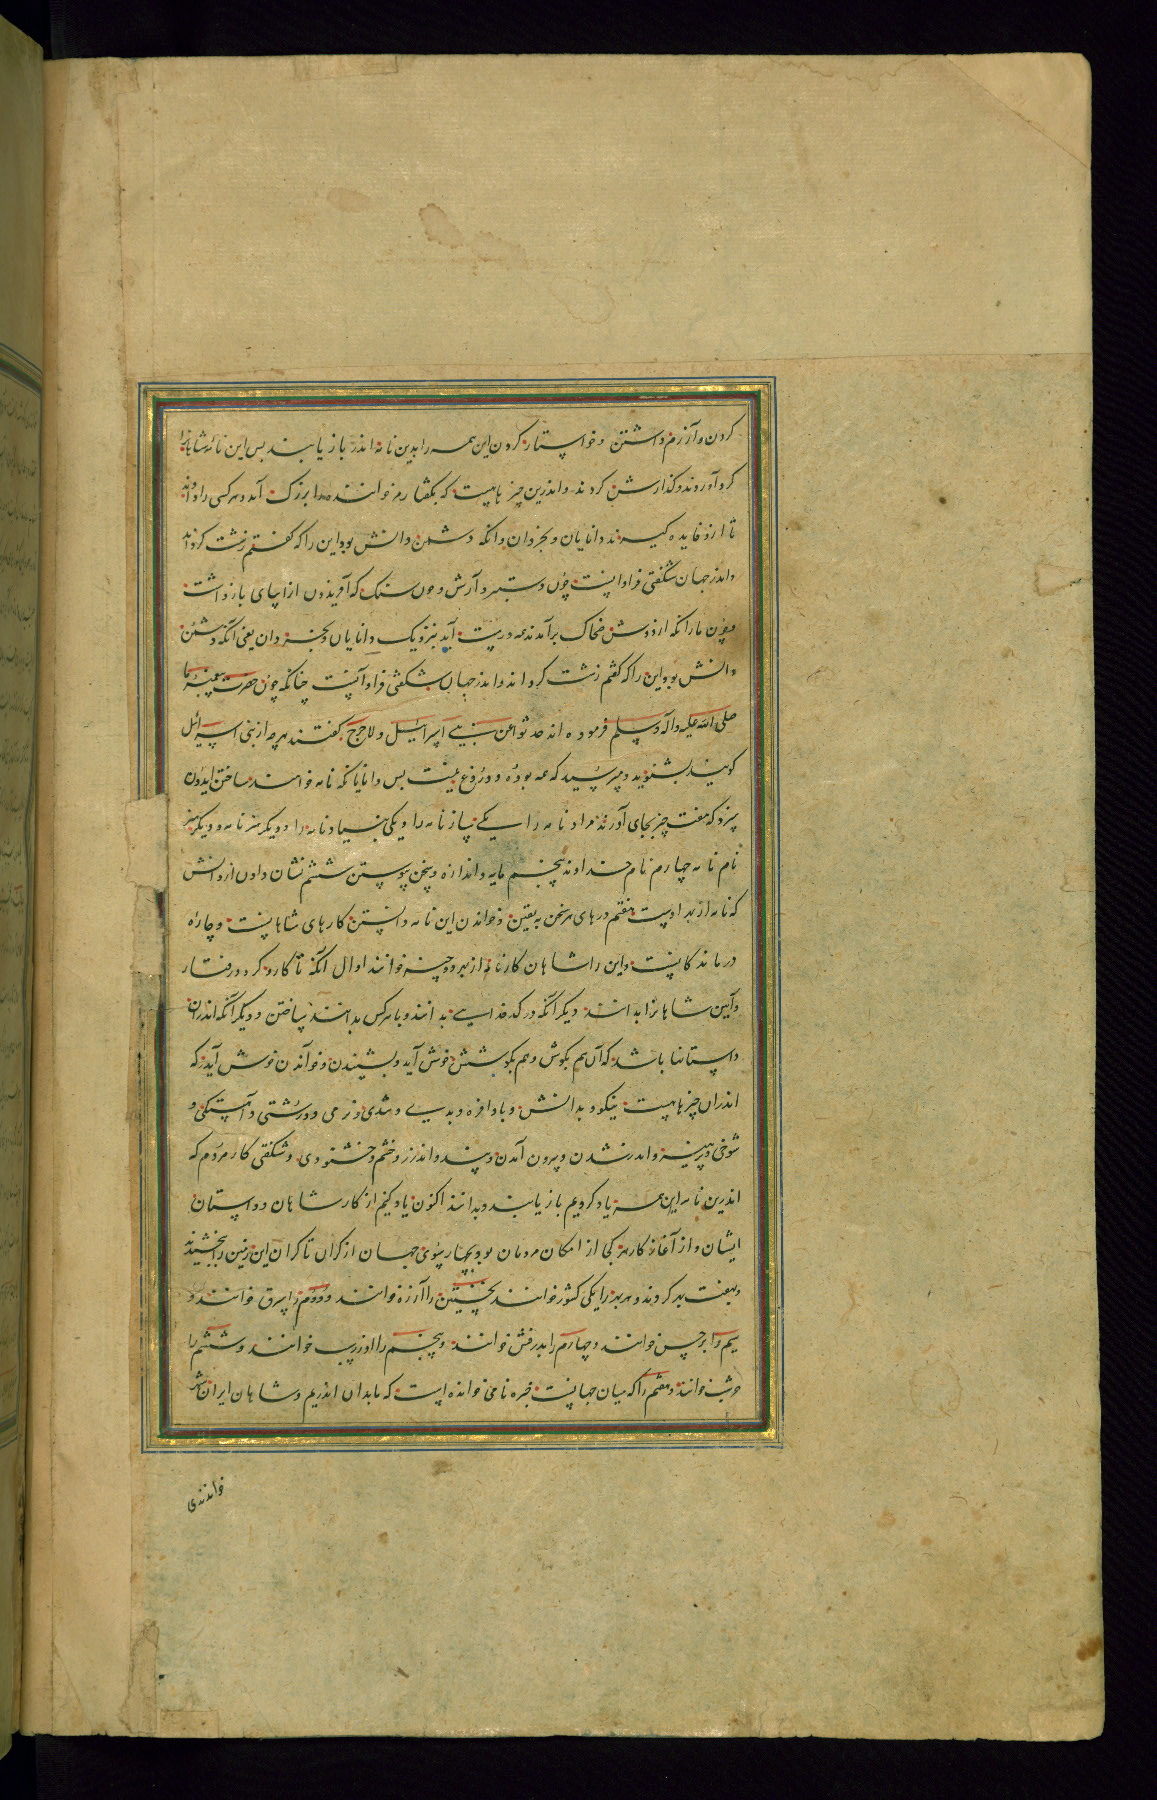 کردن و آزرم داشتن و خواستار کردن این همه را بدین نامه اندر بازیابند بس این نامهٔ شاهانرا
کرد آوردند و کذارش کردند و اندرین چیزهاییست که بکفتار مر خوانند را بزرک آمد و هرکسی را دادند
تا ازو فایده کیرند دانایان و بخردان و آنکه دشمن دانش بود این را که کفتم زشت کرداند
و اندر جهان شکفتی فراوانست چون دستبرد آرش و چون سنک که آفریذون از پای بازداشت
و چون ماران که از دوش ضحاک برآمدند همه درست آید بنزدیک دانایان و بخردان یعنی آنکه دشمن
دانش بود این را که کفتم زشت کرداند و اندر جهان شکفتی فراوانست چنانکه چون حضرت پیغمبر ما
صلی الله علیه و آله و سلم فرموده اند حدثوا عن بنی اسرائیل و لا حرج کفتند هرچه از بنی اسرائیل
کویند بشنوید و مپرسید که همه بوده و دروغ نیست بس دانایان که نامه خواهند ساختن ایدون
سزد که هفت چیز بجای آورند مراد نامه را یکی ساز نامه را و یکی بنیاد نامه را و دیکر هنر نامه و دیکر
نام نامه چهارم نام خداوند پنجم مایه و اندازه و سخن پیوستن ششم نشان دادن از دانش
که نامه از بهر اوست هفتم درهای هر سخن به یقین و خواندن این نامه دانستن کارهای شاهانست و چاره
درماندکانیست و این را شاهان کارنامه از بهر دو چیز خوانند اوال آنکه تا کارکرد و رفتار
و آیین شاهانرا بدانند دیکر آنکه در کدخدایی بدانند و با هر کس بدانند ساختن و دیکر آنکه اندران
داستانها باشد که آن هم بکوش و هم بکوشش خوش آید و بشنیدن و خواندن خوش آید که
اندران چیزهاییست نیکو و بدانش و باد افره و بدی و تندی و نرمی و درشتی و آهستکی و
شوخی و پرهیز و اندر شدن و بیرون آمدن و پند و اندرز و خشم و خشنودی و شکفتی کار مردم که
اندرین نامه این همه یاد کردیم بازیابند و بدانند اکنون یاد کنیم از کار شاهان و داستان
ایشان و از آغاز کار هر کجا از امکان مردمان بود بچهار سوی جهان از کران تا کران این زمین را ببخشیدند
و بهفت بهر کردند و هر بهر را یکی کشور خوانند نخستین را آرزه خوانند و دووم را سرق خوانند و
سیم را برحس خوانند و چهارم را بدرفش خوانند و پنجم را اوزرپب خوانند و ششم را
حرشب خوانند و هفتم را که میان جهانست خبره نامی خوانده است که ما بدان اندریم و شاهان ایران شهر
خواندندی